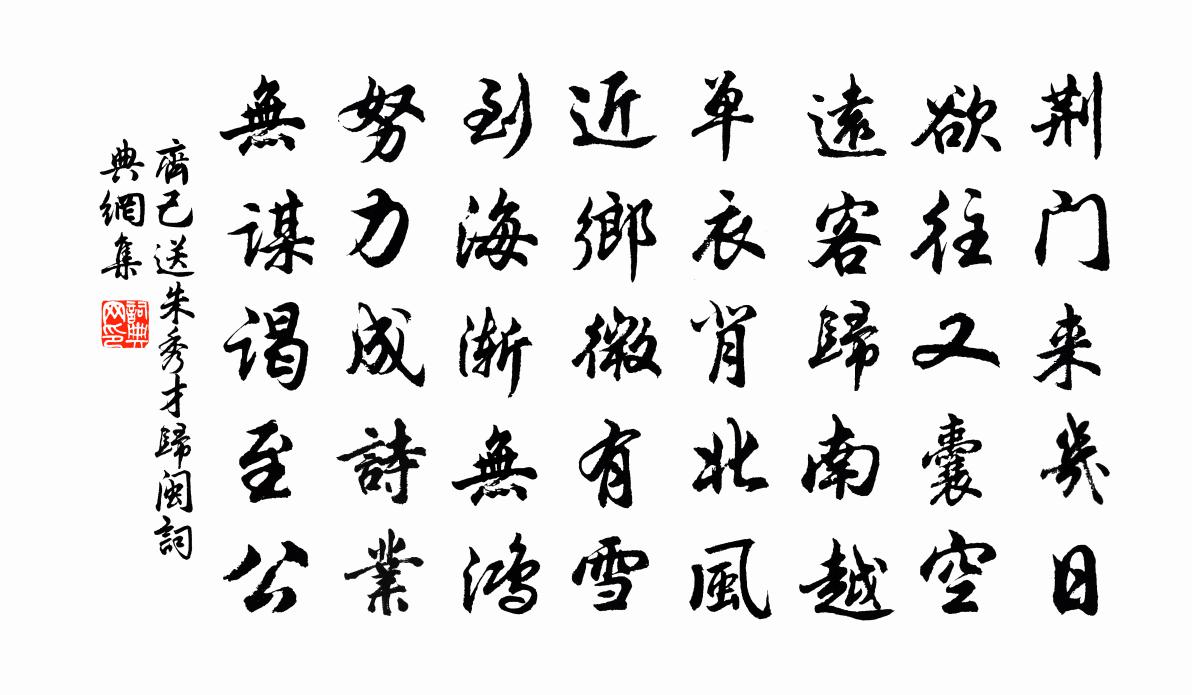 荆门来幾日
欲往又囊空
遠客歸南越
单衣背北風
近鄉微有雪
到海渐無鸿
努力成詩業
無謀谒至公
齊己送朱秀才歸闽詞
典網集
詞典
网印